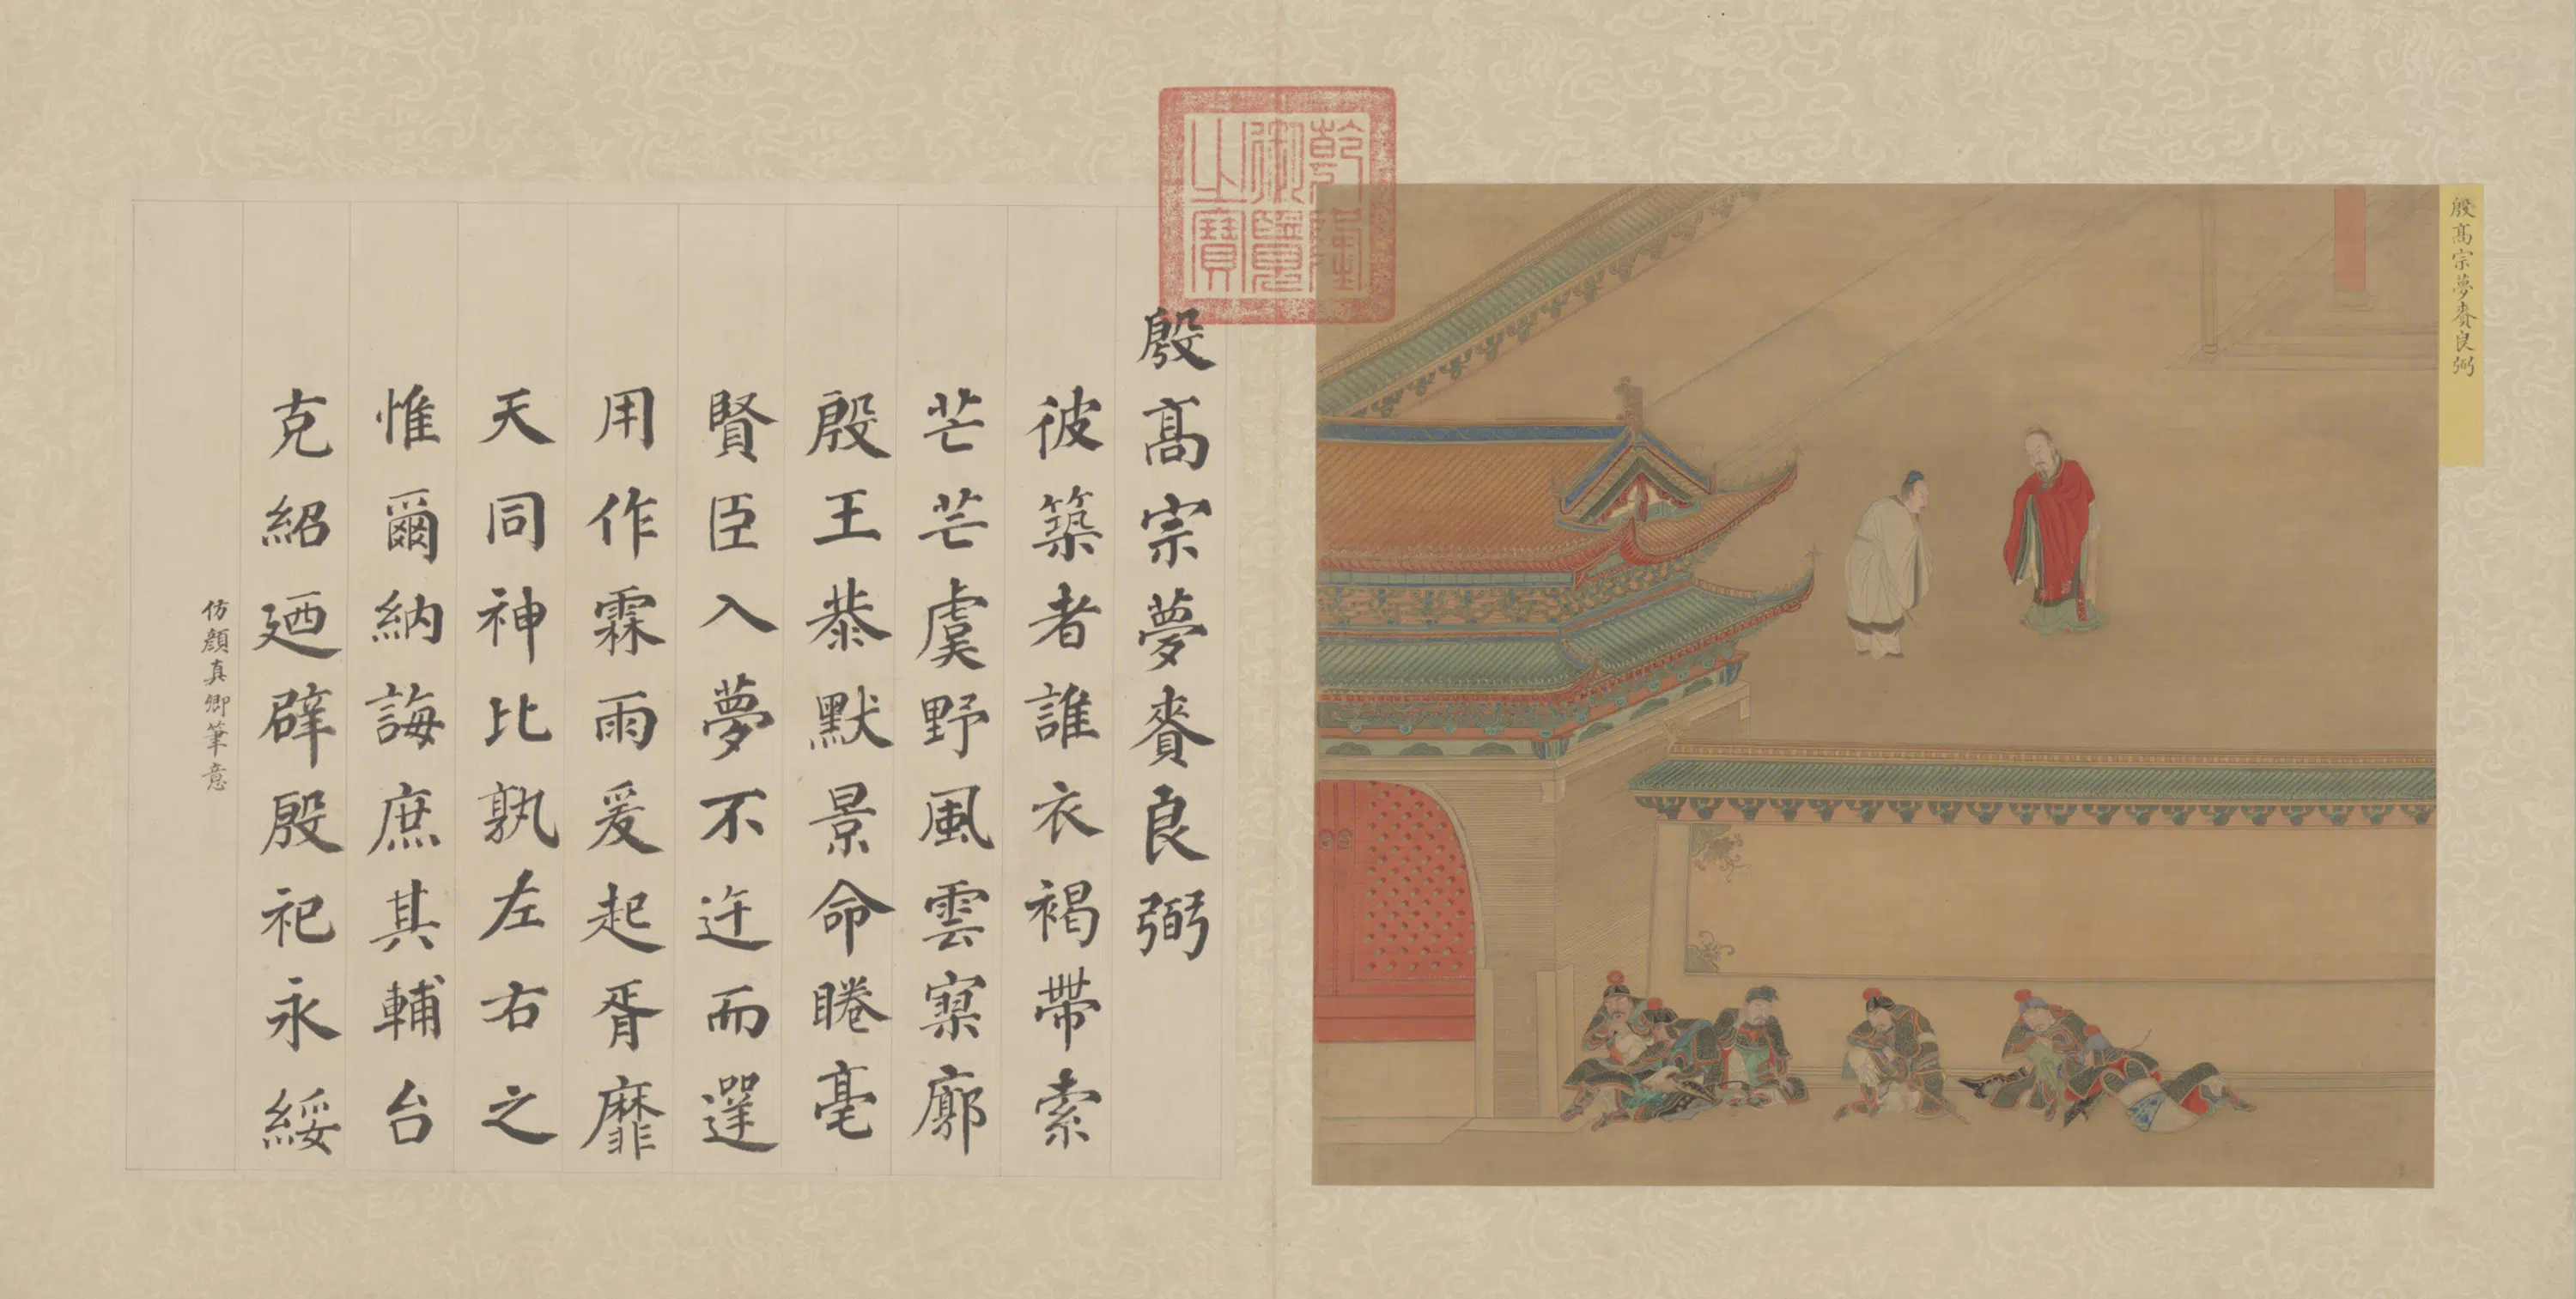 殷髙宗夢賚良弼
乾隆
御覽
之寶
殷髙宗夢賚良弼
彼築者誰衣褐帶索
芒芒虞野風雲寥廓
殷王恭默景命睠亳
賢臣入夢不迕而遌
用作霖雨爰起胥靡
天同神比孰左右之
惟爾納誨庶其輔台
克紹廼辟殷祀永綏
仿顏真卿筆意